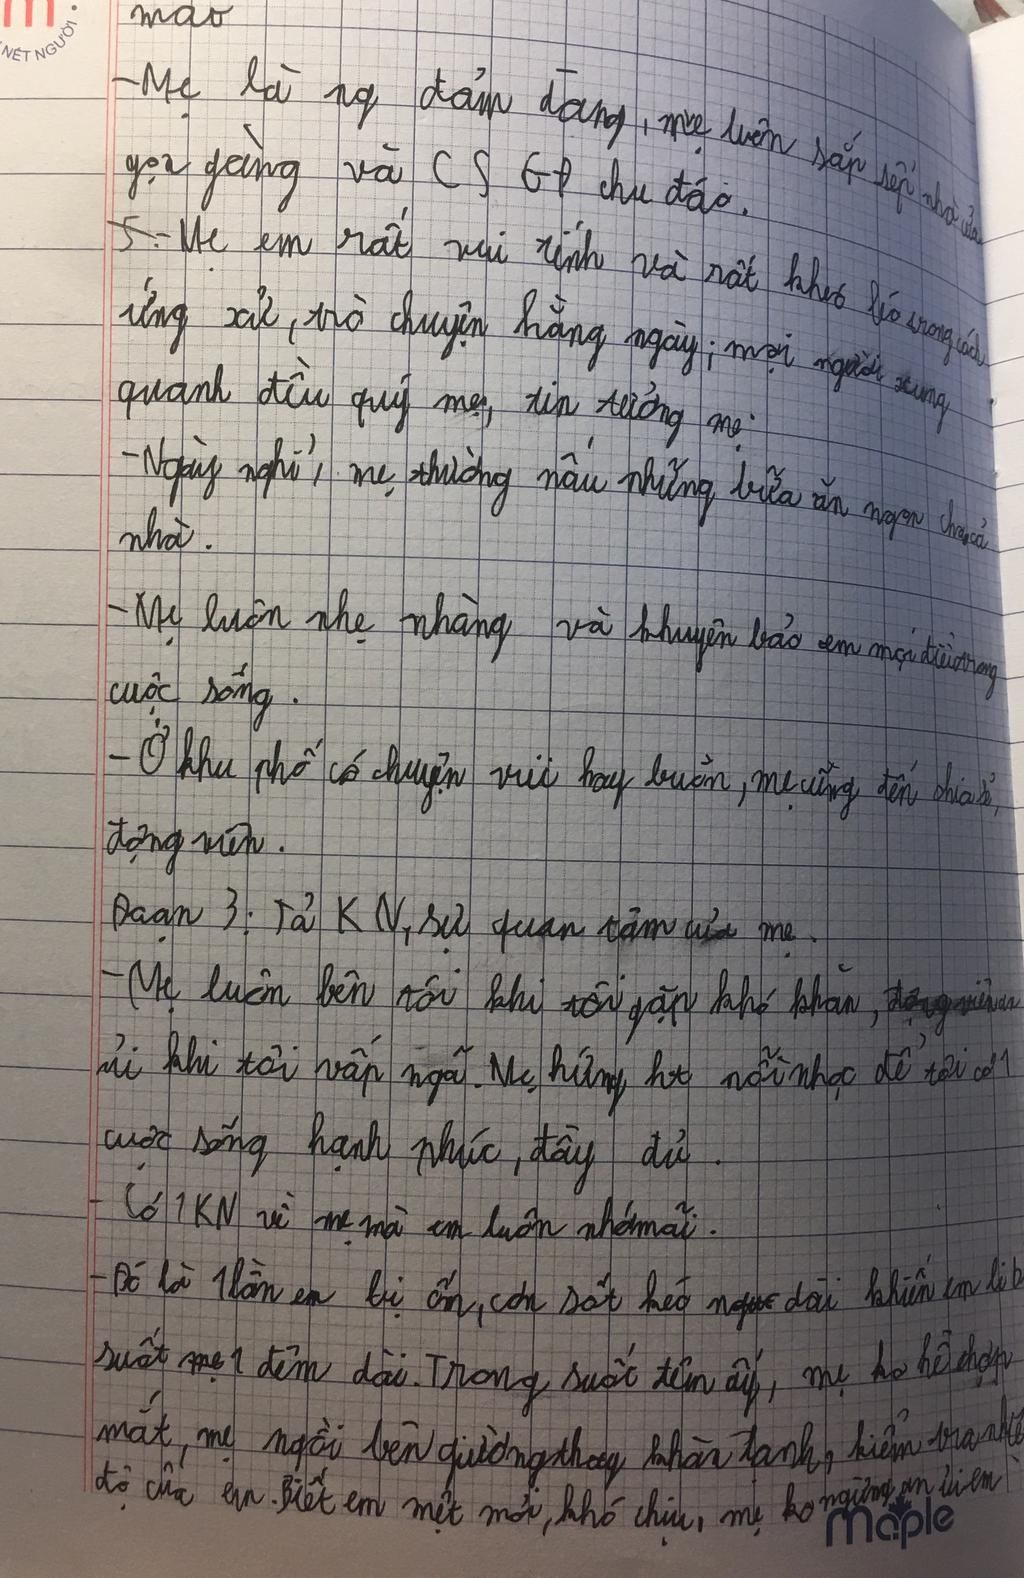 m.
NÉT NGƯỜI
mao
-Mẹ là ng đảm đang, mẹ luôn sắp sếp nhà cửa
gọn gàng và CS GĐ chu đáo.
5.-Mẹ em rất vui tính và rất khéo léo trong cách
ứng xử, trò chuyện hằng ngày; mọi người xung
quanh đều quý mẹ, tin tưởng mẹ.
-Ngày nghỉ, mẹ thường nấu những bữa ăn ngon cho cả
nhà.
-Mẹ luôn nhẹ nhàng và khuyên bảo em mọi điều trong
cuộc sống.
-Ở khu phố có chuyện vui hay buồn, mẹ cũng đến chia sẻ,
động viên.
Đoạn 3: Tả KN, sự quan tâm của mẹ.
-Mẹ luôn bên tôi khi tôi gặp khó khăn, an
ủi khi tôi vấp ngã. Mẹ hứng ht nỗi nhọc để tôi có 1
cuộc sống hạnh phúc, đầy đủ.
- Có 1 KN về mẹ mà em luôn nhớ mãi.
-Đó là 1 lần em bị ốm, cơn sốt kéo dài khiến em li b
suốt 1 đêm dài. Trong suốt đêm ấy, mẹ ko hề chợp
mắt, mẹ ngồi bên giường thay khăn lạnh, kiểm tra nhiệt
độ của em. Biết em mệt mỏi, khó chịu, mẹ ko ngừng an ủi em
maple